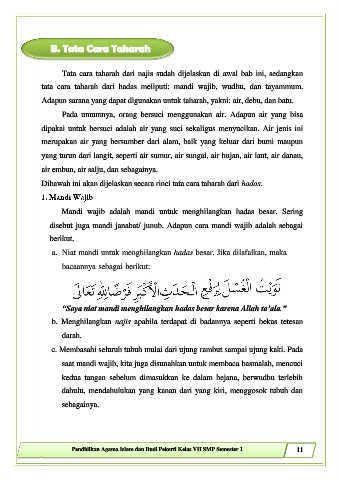 B. Tata Cara Taharah
Tata cara taharah dari najis sudah dijelaskan di awal bab ini, sedangkan
tata cara taharah dari hadas meliputi: mandi wajib, wudhu, dan tayammum.
Adapun sarana yang dapat digunakan untuk taharah, yakni: air, debu, dan batu.
Pada umumnya, orang bersuci menggunakan air. Adapun air yang bisa
dipakai untuk bersuci adalah air yang suci sekaligus menyucikan. Air jenis ini
merupakan air yang bersumber dari alam, baik yang keluar dari bumi maupun
yang turun dari langit, seperti air sumur, air sungai, air hujan, air laut, air danau,
air embun, air salju, dan sebagainya.
Dibawah ini akan dijelaskan secara rinci tata cara taharah dari hadas.
1. Mandi Wajib
Mandi wajib adalah mandi untuk menghilangkan hadas besar. Sering
disebut juga mandi janabat/ junub. Adapun cara mandi wajib adalah sebagai
berikut.
a. Niat mandi untuk menghilangkan hadas besar. Jika dilafalkan, maka
bacaannya sebagai berikut:
نَوَيْتُ الْغُسْلَ لِرَفْعِ الْحَدَثِ الْأَكْبَرِ فَرْضًا لِلَّهِ تَعَالَى
“Saya niat mandi menghilangkan hadas besar karena Allah ta’ala.”
b. Menghilangkan najis apabila terdapat di badannya seperti bekas tetesan
darah.
c. Membasahi seluruh tubuh mulai dari ujung rambut sampai ujung kaki. Pada
saat mandi wajib, kita juga disunahkan untuk membaca basmalah, mencuci
kedua tangan sebelum dimasukkan ke dalam bejana, berwudhu terlebih
dahulu, mendahulukan yang kanan dari yang kiri, menggosok tubuh dan
sebagainya.
Pendidikan Agama Islam dan Budi Pekerti Kelas VII SMP Semester 1
11